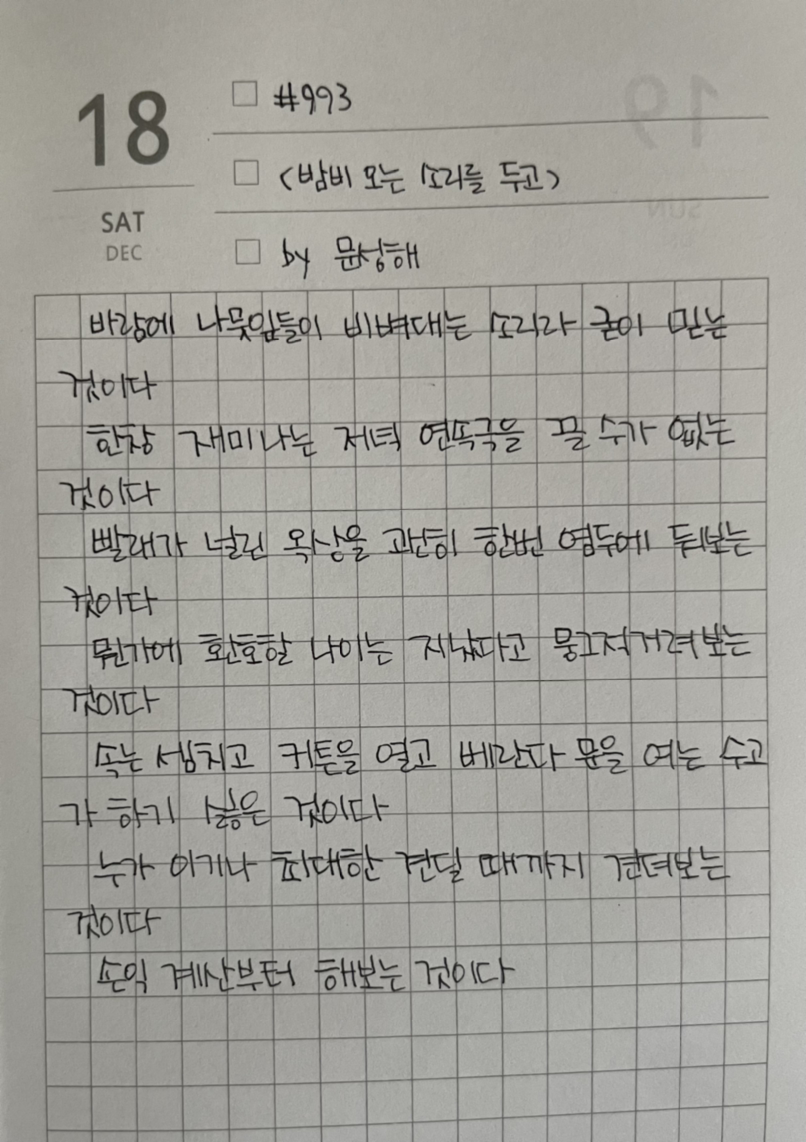 18
SAT
DEC
#993
<밤비 오는 소리를 두고>
by 문성해
바람에 나뭇잎들이 비벼대는 소리라 굳이 믿는
것이다
한창 재미나는 저녁 연속극을 끌 수가 없는
것이다
빨래가 널린 옥상을 괜히 한번 염두에 둬보는
것이다
뭔가에 환호할 나이는 지났다고 뭉그적거려보는
것이다
속는 셈치고 커튼을 열고 베란다 문을 여는 수고
가 하기 싫은 것이다
누가 이기나 최대한 견딜 때까지 견뎌보는
것이다
손익 계산부터 해보는 것이다
19
SUN